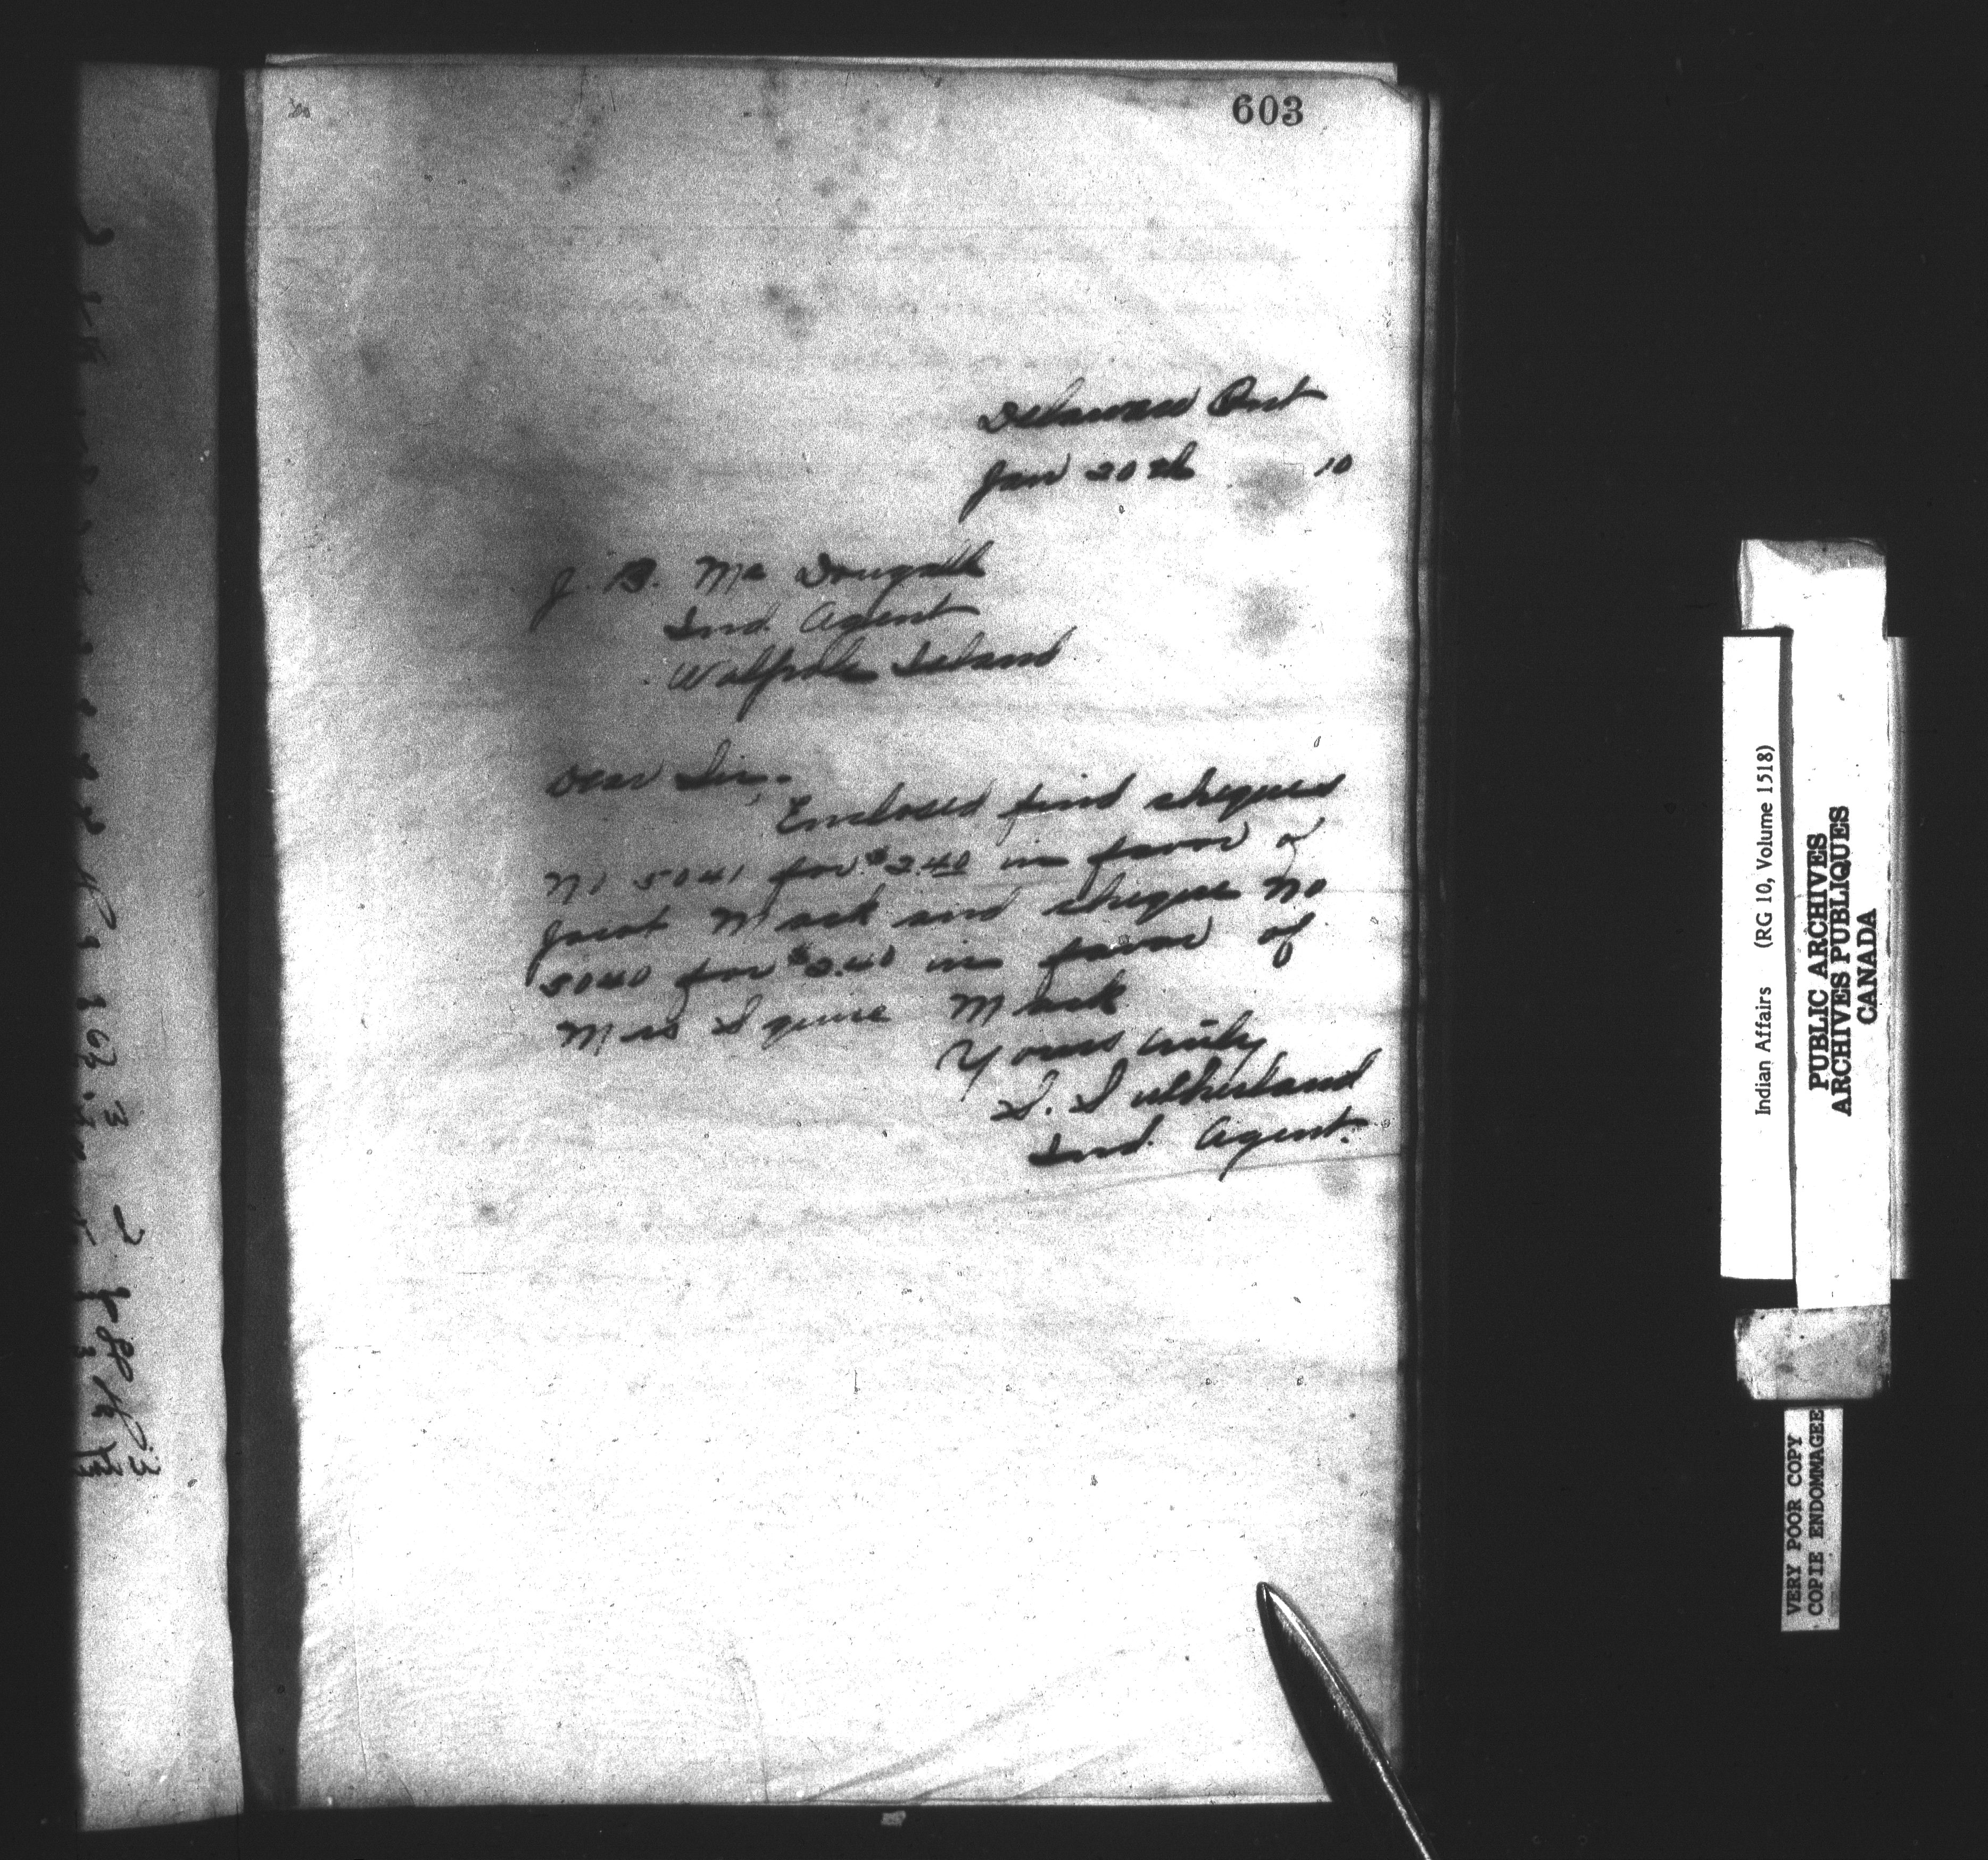 603
Delaware Ont
Jan 20th 10
J. B. Mc Dougall
Ind. Agent
Walpole Island
Dear Sir,-
Enclosed find cheques
No 5041 for $2.40 in favor of
Mask and cheque No
5040 for $2.40 in favor of
Mrs Squire Mask
Yours truly
S. Sutherland
Ind. Agent.
Indian Affairs (RG 10, Volume 1518)
PUBLIC ARCHIVES
ARCHIVES PUBLIQUES
CANADA
VERY POOR COPY
COPIE ENDOMMAGEE